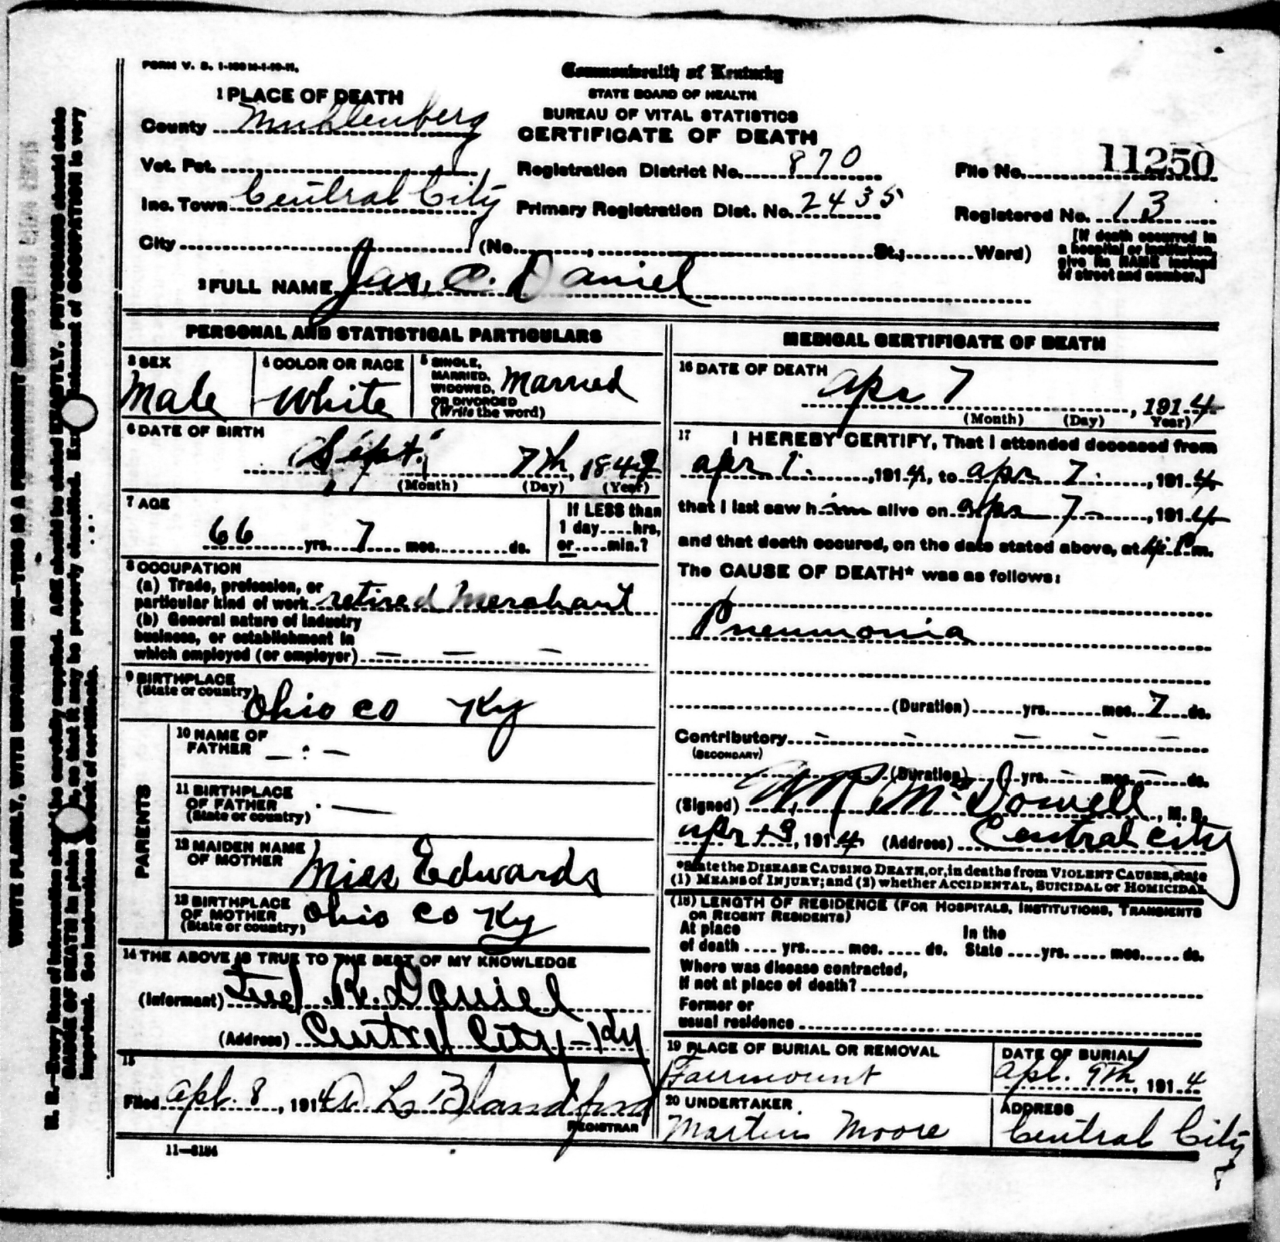 FORM V. S. 1-
Commonwealth of Kentucky
STATE BOARD OF HEALTH
BUREAU OF VITAL STATISTICS
CERTIFICATE OF DEATH
1 PLACE OF DEATH
County Muhlenberg
Vot. Pct.
Registration District No. 870
File No. 11250
Inc. Town Central City
Primary Registration Dist. No. 2435
Registered No. 13
City (No. , St.; Ward)
[If death occurred in
a hospital or institution,
give its NAME instead
of street and number.]
2 FULL NAME Jas. C. Daniel
PERSONAL AND STATISTICAL PARTICULARS
3 SEX
Male
4 COLOR OR RACE
White
5 SINGLE,
MARRIED,
WIDOWED,
OR DIVORCED
(Write the word)
Married
6 DATE OF BIRTH
Sept. 7th, 184
(Month) (Day) (Year)
7 AGE
66 yrs. 7 mos. ds.
If LESS than
1 day....hrs,
or....min.?
8 OCCUPATION
(a) Trade, profession, or
particular kind of work retired Merchant
(b) General nature of industry
business, or establishment in
which employed (or employer) — — —
9 BIRTHPLACE
(State or country) Ohio co Ky
PARENTS
10 NAME OF
FATHER
11 BIRTHPLACE
OF FATHER
(State or country) —
12 MAIDEN NAME
OF MOTHER Miss Edwards
13 BIRTHPLACE
OF MOTHER
(State or country) Ohio co Ky
14 THE ABOVE IS TRUE TO THE BEST OF MY KNOWLEDGE
(Informant) Fred R. Daniel
(Address) Central City - Ky
15
Filed apl. 8, 1914 L Blandford
REGISTRAR
11—5184
MEDICAL CERTIFICATE OF DEATH
16 DATE OF DEATH
Apr 7, 1914
(Month) (Day) Year)
17 I HEREBY CERTIFY, That I attended deceased from
apr 1, 1914, to apr 7, 1914
that I last saw him alive on apr 7, 1914
and that death occured, on the date stated above, at m.
The CAUSE OF DEATH* was as follows:
Pneumonia
(Duration) yrs. mos. 7 ds.
Contributory — — — — —
(SECONDARY)
(Duration) yrs. — mos. — ds.
(Signed) McDowell, M. D.
apr 9, 1914 (Address) Central City
*State the DISEASE CAUSING DEATH, or, in deaths from VIOLENT CAUSES, state
(1) MEANS OF INJURY; and (2) whether ACCIDENTAL, SUICIDAL or HOMICIDAL
(18) LENGTH OF RESIDENCE (FOR HOSPITALS, INSTITUTIONS, TRANSIENTS
OR RECENT RESIDENTS)
At place
of death .... yrs. mos. ds.
In the
State .... yrs. mos. ds.
Where was disease contracted,
if not at place of death?
Former or
usual residence
19 PLACE OF BURIAL OR REMOVAL
Fairmount
DATE OF BURIAL
apl. 9th, 1914
20 UNDERTAKER
Martin Moore
ADDRESS
Central City
WRITE PLAINLY, WITH UNFADING INK—THIS IS A PERMANENT RECORD
N. B.—Every item of information should be carefully supplied. AGE should be stated EXACTLY. PHYSICIANS should state
CAUSE OF DEATH in plain so that it may be properly classified. statement of OCCUPATION is very
important. See instructions on back of certificate.